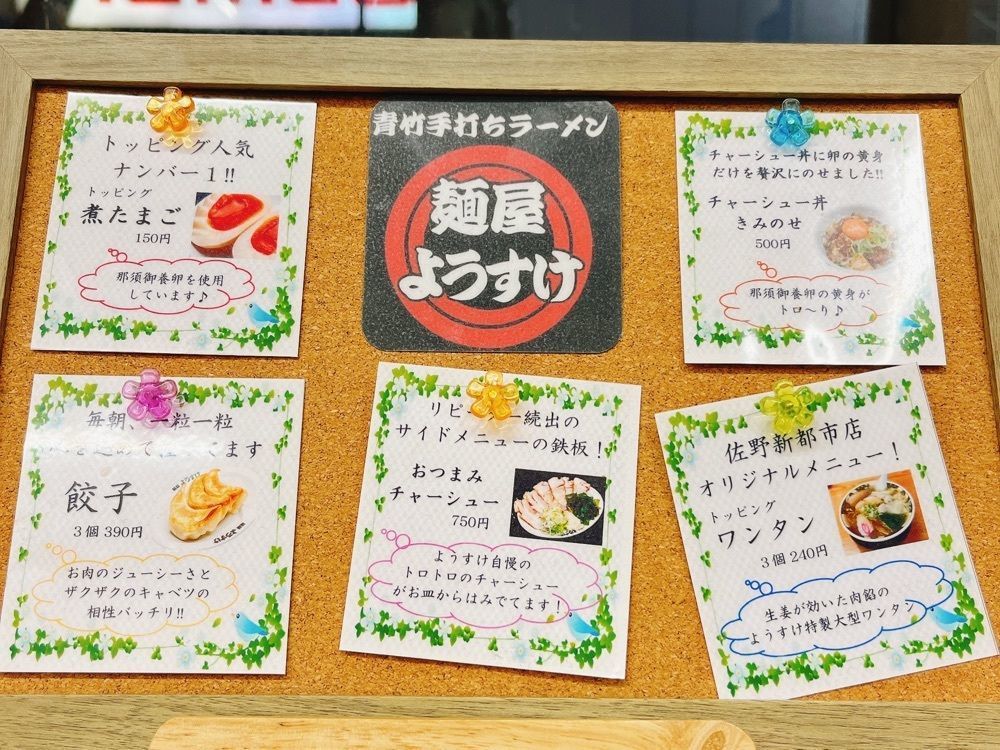 トッピング人気
ナンバー1!!
トッピング
煮たまご
150円
那須御養卵を使用
しています♪
青竹手打ちラーメン
麺屋
ようすけ
チャーシュー丼に卵の黄身
だけを贅沢にのせました!!
チャーシュー丼
きみのせ
500円
那須御養卵の黄身が
トロ〜り♪
毎朝、一粒一粒
てます
餃子
3個 390円
お肉のジューシーさと
ザクザクのキャベツの
相性バッチリ!!
リピ 続出の
サイドメニューの鉄板!
おつまみ
チャーシュー
750円
ようすけ自慢の
トロトロのチャーシュー
がお皿からはみでてます!
佐野新都市店
オリジナルメニュー!
トッピング
ワンタン
3個 240円
生姜が効いた肉餡の
ようすけ特製大型ワンタン